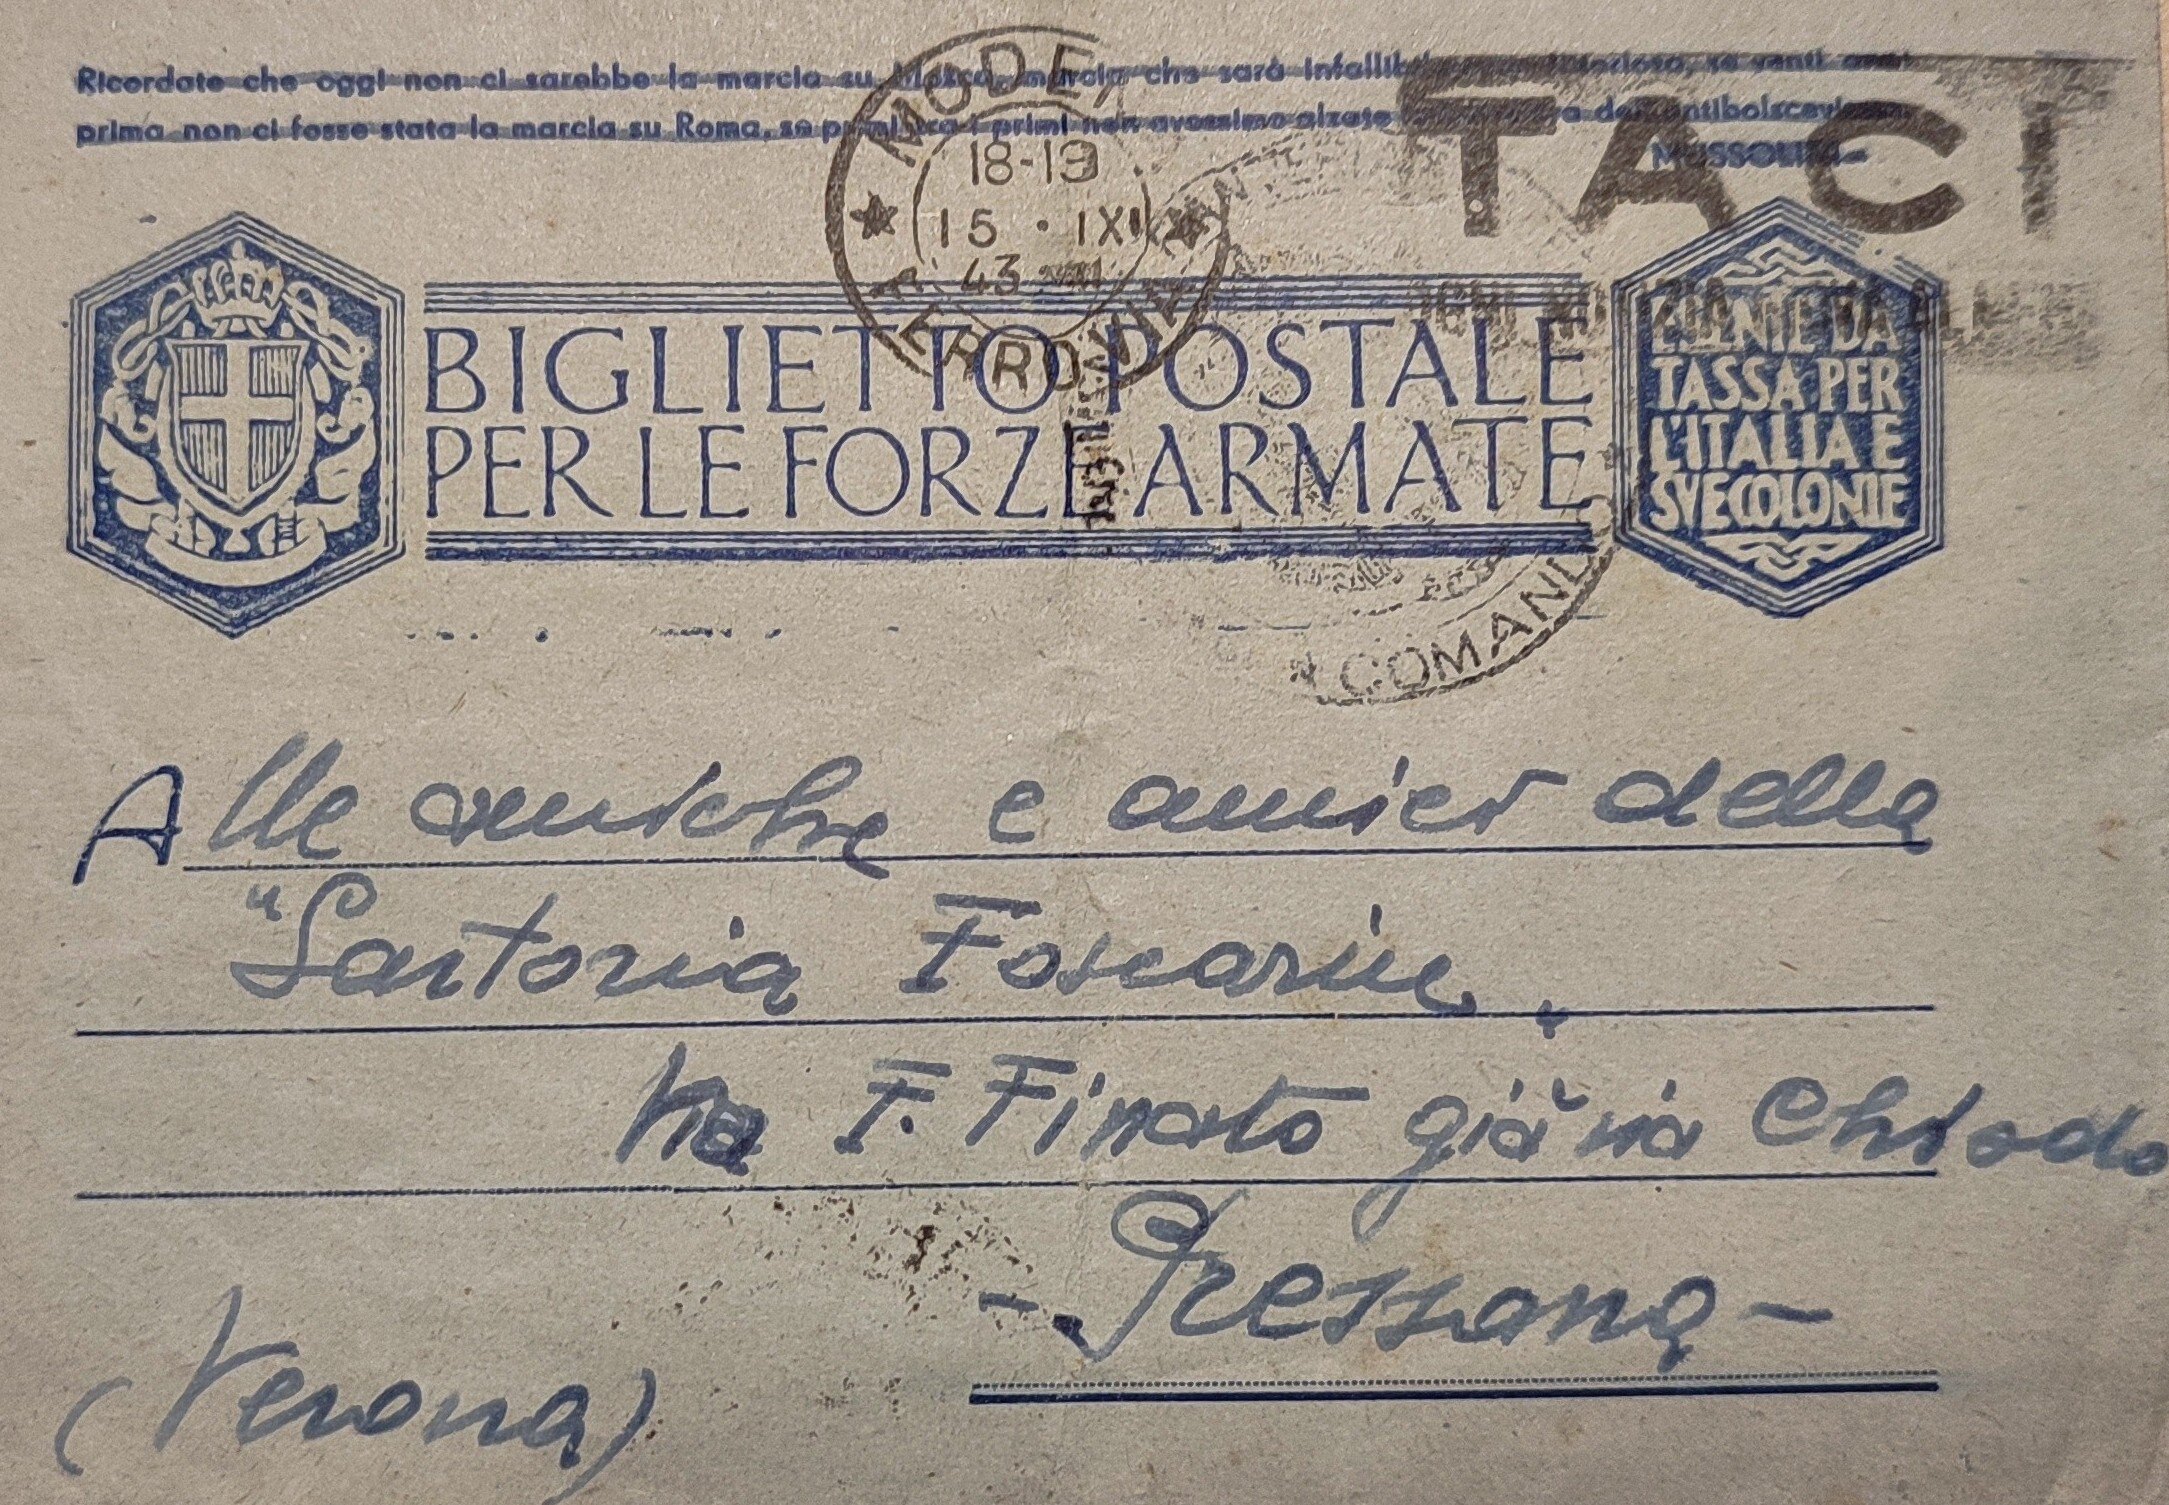 Ricordate che oggi non ci sarebbe la marcia su Mosca, marcia che sarà infallibilmente vittoriosa, se venti anni
prima non ci fosse stata la marcia su Roma, se primi fra i primi non avessimo alzato la bandiera dell'antibolscevismo.
MUSSOLINI
MODENA
18-19
15 · IX
43
FERROVIA
TACI
BIGLIETTO POSTALE
PER LE FORZE ARMATE
ESENTE DA
TASSA PER
L'ITALIA E
SVE COLONIE
COMANDO
Alle amiche e amici della
"Sartoria Foscarini"
Via F. Finato già via Chiodo
- Pressana -
(Verona)